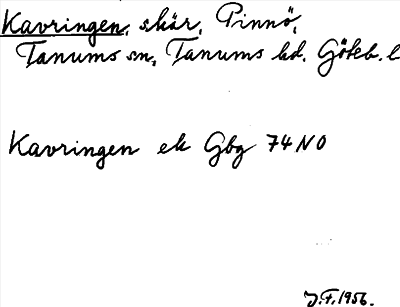 Kavringen, skär, Pinnö,
Tanums sn, Tanums hd. Göteb. l
Kavringen ek Gbg 74 NO
J.F. 1956.